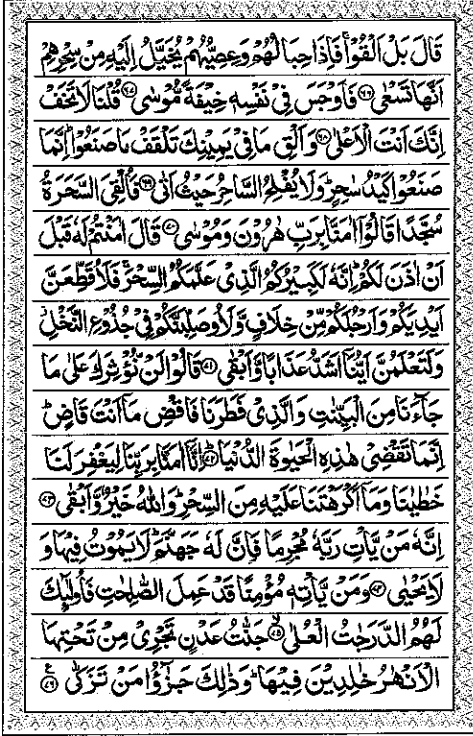 قَالَ بَلْ اَلْقُوْا ۚ فَاِذَا حِبَالُهُمْ وَعِصِيُّهُمْ يُخَيَّلُ اِلَيْهِ مِنْ سِحْرِهِمْ
اَنَّهَا تَسْعٰى ﴿۶۶﴾ فَاَوْجَسَ فِيْ نَفْسِهٖ خِيْفَةً مُّوْسٰى ﴿۶۷﴾ قُلْنَا لَا تَخَفْ
اِنَّكَ اَنْتَ الْاَعْلٰى ﴿۶۸﴾ وَاَلْقِ مَا فِيْ يَمِيْنِكَ تَلْقَفْ مَا صَنَعُوْا ؕ اِنَّمَا
صَنَعُوْا كَيْدُ سٰحِرٍ ؕ وَلَا يُفْلِحُ السَّاحِرُ حَيْثُ اَتٰى ﴿۶۹﴾ فَاُلْقِيَ السَّحَرَةُ
سُجَّدًا قَالُوْۤا اٰمَنَّا بِرَبِّ هٰرُوْنَ وَمُوْسٰى ﴿۷۰﴾ قَالَ اٰمَنْتُمْ لَهٗ قَبْلَ
اَنْ اٰذَنَ لَكُمْ ؕ اِنَّهٗ لَكَبِيْرُكُمُ الَّذِيْ عَلَّمَكُمُ السِّحْرَ ۚ فَلَاُقَطِّعَنَّ
اَيْدِيَكُمْ وَاَرْجُلَكُمْ مِّنْ خِلَافٍ وَّلَاُوصَلِّبَنَّكُمْ فِيْ جُذُوْعِ النَّخْلِ ۫
وَلَتَعْلَمُنَّ اَيُّنَاۤ اَشَدُّ عَذَابًا وَّاَبْقٰى ﴿۷۱﴾ قَالُوْا لَنْ نُّؤْثِرَكَ عَلٰى مَا
جَآءَنَا مِنَ الْبَيِّنٰتِ وَالَّذِيْ فَطَرَنَا فَاقْضِ مَاۤ اَنْتَ قَاضٍ ؕ
اِنَّمَا تَقْضِيْ هٰذِهِ الْحَيٰوةَ الدُّنْيَا ﴿۷۲﴾ اِنَّاۤ اٰمَنَّا بِرَبِّنَا لِيَغْفِرَ لَنَا
خَطٰيٰنَا وَمَاۤ اَكْرَهْتَنَا عَلَيْهِ مِنَ السِّحْرِ ؕ وَاللّٰهُ خَيْرٌ وَّاَبْقٰى ﴿۷۳﴾
اِنَّهٗ مَنْ يَّاْتِ رَبَّهٗ مُجْرِمًا فَاِنَّ لَهٗ جَهَنَّمَ ؕ لَا يَمُوْتُ فِيْهَا وَ
لَا يَحْيٰى ﴿۷۴﴾ وَمَنْ يَّاْتِهٖ مُؤْمِنًا قَدْ عَمِلَ الصّٰلِحٰتِ فَاُولٰٓئِكَ
لَهُمُ الدَّرَجٰتُ الْعُلٰى ﴿۷۵﴾ جَنّٰتُ عَدْنٍ تَجْرِيْ مِنْ تَحْتِهَا
الْاَنْهٰرُ خٰلِدِيْنَ فِيْهَا ؕ وَذٰلِكَ جَزٰٓؤُا مَنْ تَزَكّٰى ﴿۷۶﴾ ع